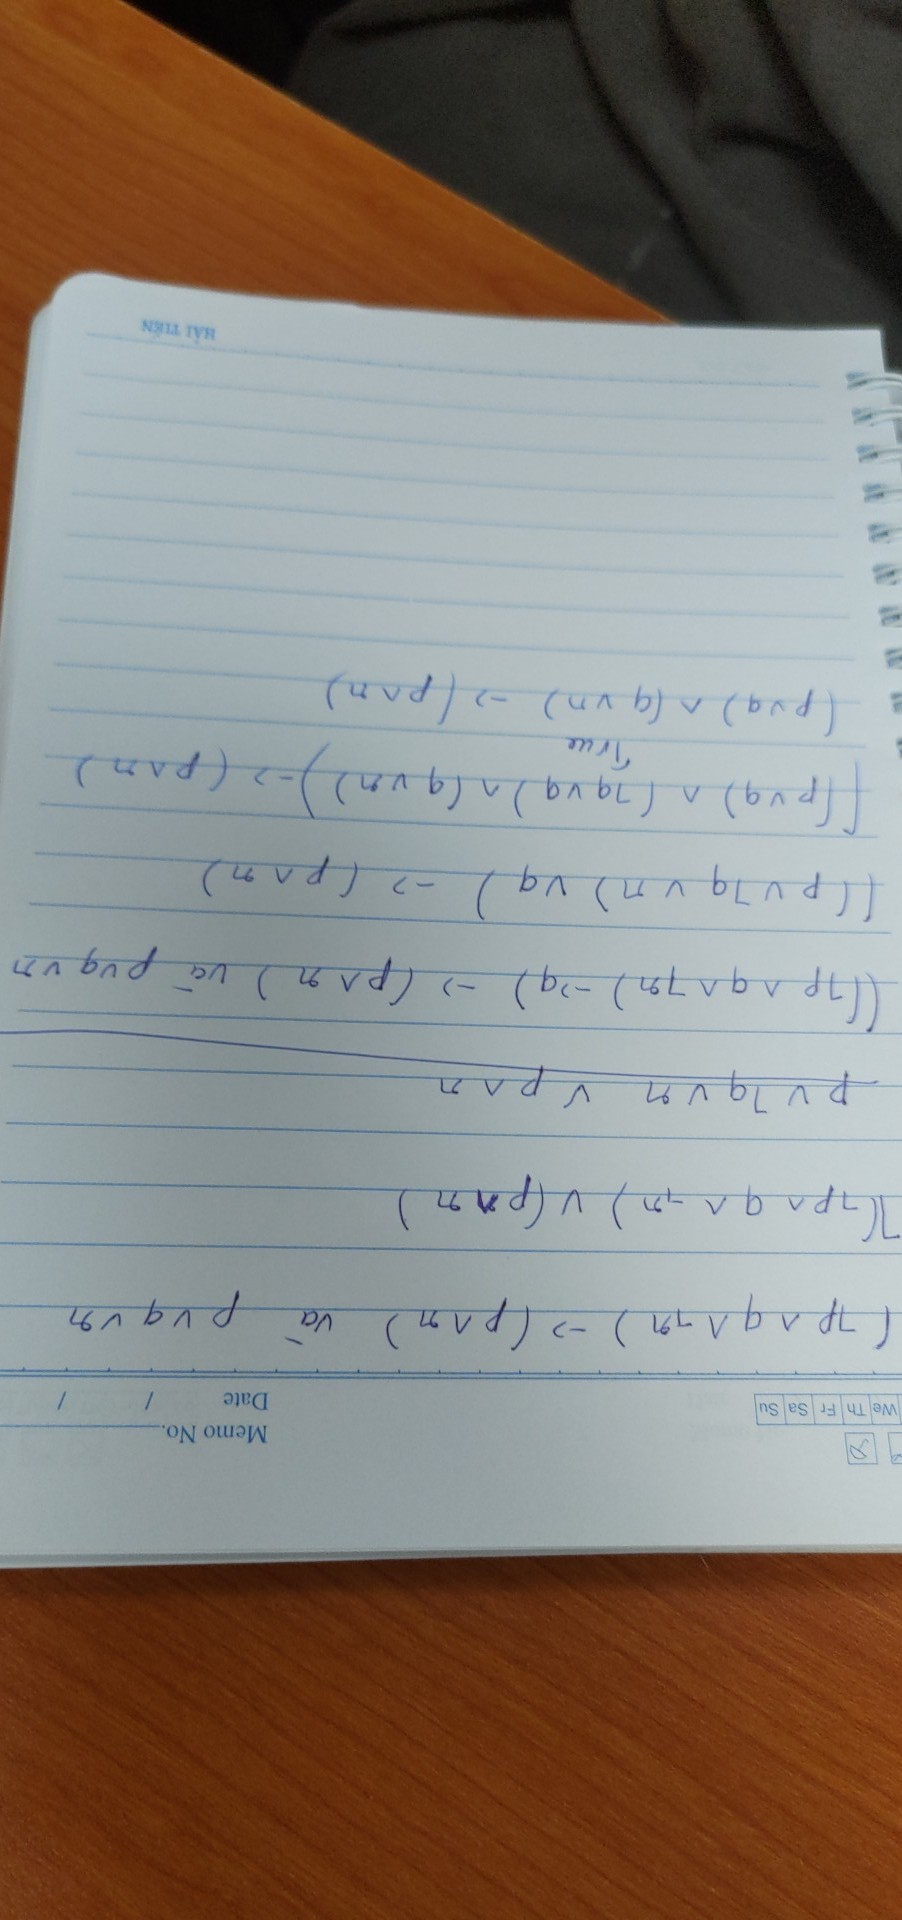 We Th Fr Sa Su
Memo No.
Date / /
(¬p ∧ q ∧ ¬r) -> (p ∧ r) và p ∨ q ∨ r
¬(¬p ∧ q ∧ ¬r) ∨ (p ∧ r)
p ∨ ¬q ∨ r ∨ p ∧ r
((¬p ∧ q ∧ ¬r) -> q) -> (p ∧ r) và p ∨ q ∨ r
((p ∨ ¬q ∨ r) ∨ q) -> (p ∧ r)
((p ∨ q) ∧ (¬q ∨ q) ∧ (q ∨ r)) -> (p ∧ r)
True
(p ∨ q) ∧ (q ∨ r) -> (p ∧ r)
HẢI TIẾN